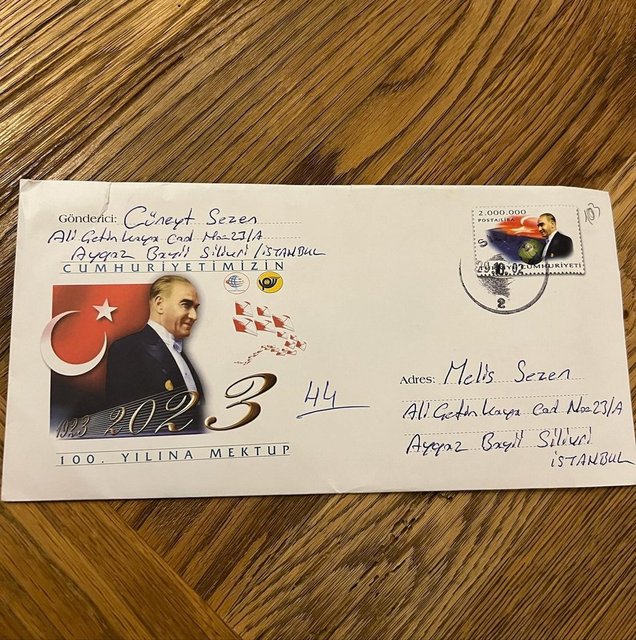 Gönderici: Cüneyt Sezen
Ali Çetinkaya Cad No=23/A
Aygaz Bayii Silivri/İSTANBUL
CUMHURİYETİMİZİN
1923 2023
100. YILINA MEKTUP
44
2.000.000
POSTA/LİRA
CUMHURİYETİ
29.10.02
2
103
Adres: Melis Sezen
Ali Çetinkaya Cad No=23/A
Aygaz Bayii Silivri
İSTANBUL